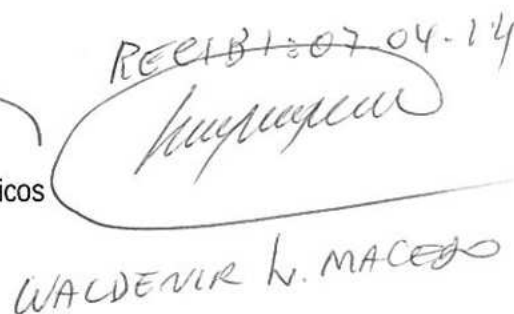 RECIBI: 07-04-14
icos
WALDENIR W. MACEDO